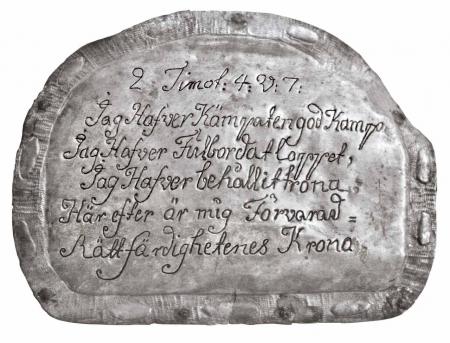 2 Timot: 4: V: 7:
Jag Hafver Kämpat en god Kamp
Jag Hafver Fulbordat Loppet,
Jag Hafver behållit trona,
Här efter är mig Förvarad =
Rättfärdighetenes Krona